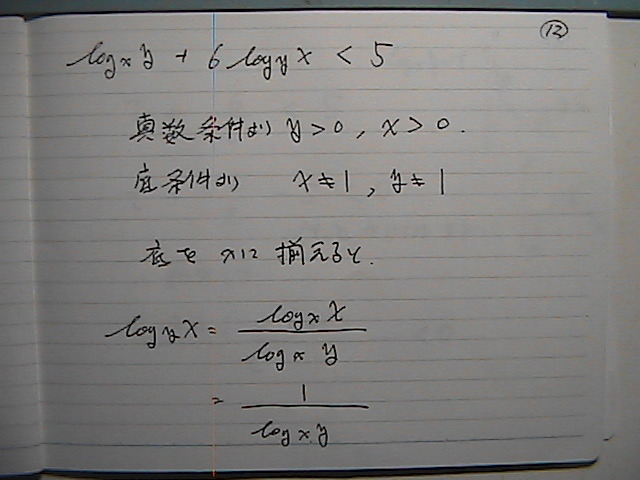 ⑫
log_x y + 6 log_y x < 5
真数条件より y > 0 , x > 0 .
底条件より x ≠ 1 , y ≠ 1
底を xに 揃えると.
log_y x = \frac{log_x x}{log_x y}
= \frac{1}{log_x y}